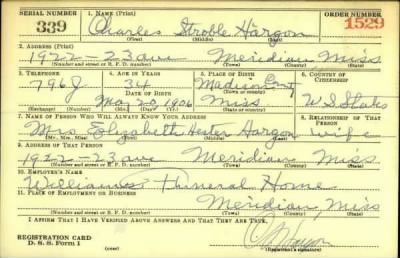 SERIAL NUMBER 1. NAME (Print) ORDER NUMBER
339 Charles Stroble Hargon 1529
(First) (Middle) (Last)
2. ADDRESS (Print)
1922 - 23 ave Meridian Miss
(Number and street or R. F. D. number) (Town) (County) (State)
3. TELEPHONE 4. AGE IN YEARS 5. PLACE OF BIRTH 6. COUNTRY OF CITIZENSHIP
796J 34 Madison
DATE OF BIRTH (Town or county)
May 20, 1906 Miss U.S. States
(Exchange) (Number) (Mo.) (Day) (Yr.) (State or country)
7. NAME OF PERSON WHO WILL ALWAYS KNOW YOUR ADDRESS 8. RELATIONSHIP OF THAT PERSON
Mrs. Elizabeth Hester Hargon wife
(Mr., Mrs., Miss) (First) (Middle) (Last)
9. ADDRESS OF THAT PERSON
1922 - 23 ave Meridian Miss
(Number and street or R. F. D. number) (Town) (County) (State)
10. EMPLOYER'S NAME
Williams Funeral Home
11. PLACE OF EMPLOYMENT OR BUSINESS
Meridian, Miss
(Number and street or R. F. D. number) (Town) (County) (State)
I AFFIRM THAT I HAVE VERIFIED ABOVE ANSWERS AND THAT THEY ARE TRUE.
REGISTRATION CARD
D. S. S. Form 1 (over) (Registrant's signature)